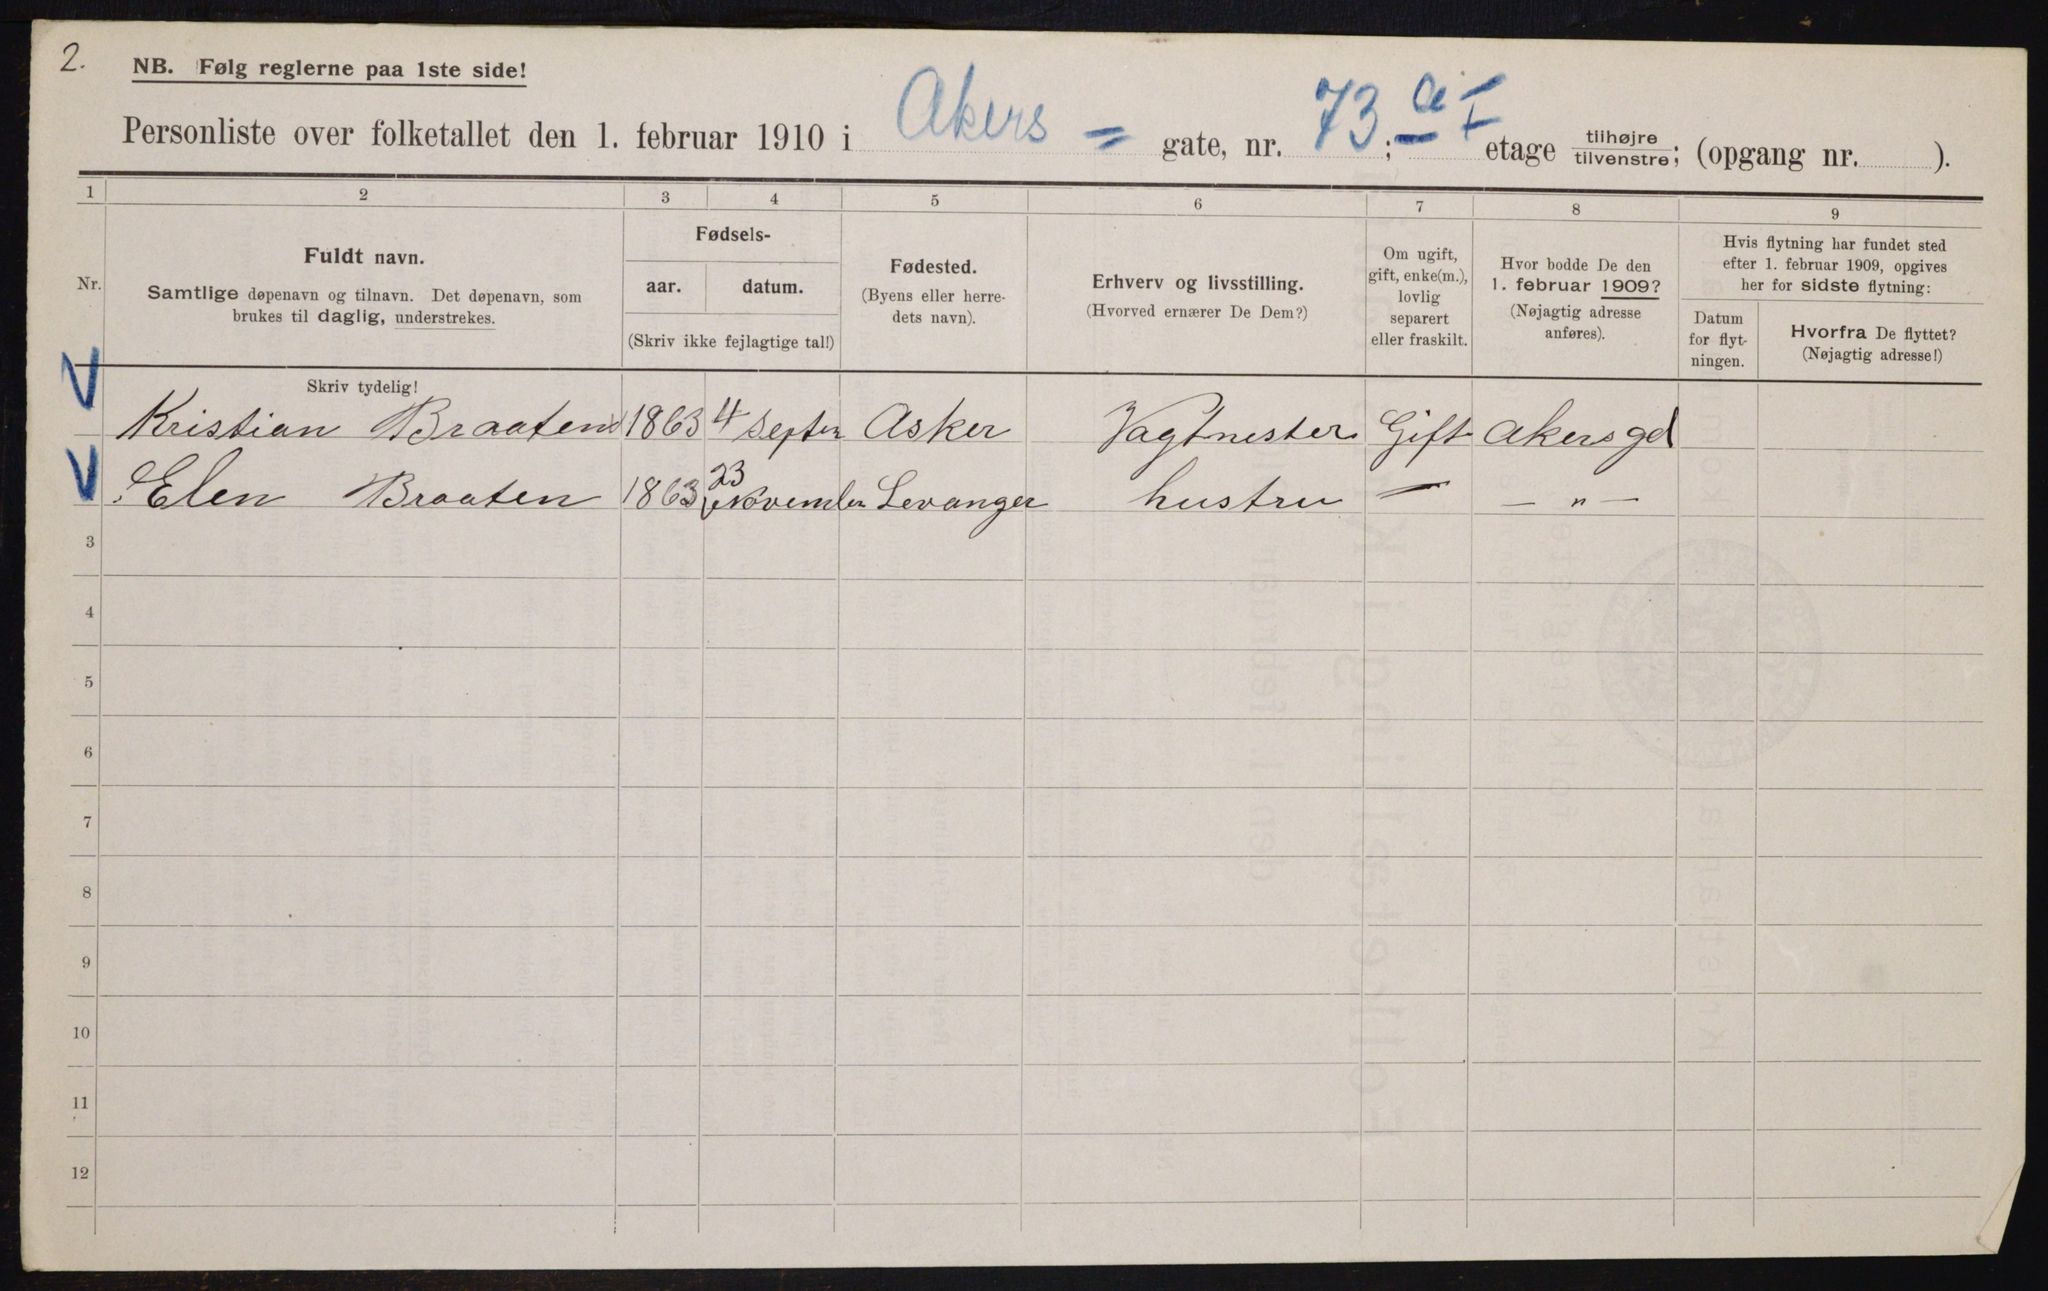 2.
NB. Følg reglerne paa 1ste side!
Personliste over folketallet den 1. februar 1910 i Akers = gate, nr. 73; a I etage tilhøjre/tilvenstre; (opgang nr. ).
1 2 3 4 5 6 7 8 9
Nr.
Fuldt navn.
Samtlige døpenavn og tilnavn. Det døpenavn, som
brukes til daglig, understrekes.
Fødsels-
aar. datum.
(Skriv ikke fejlagtige tal!)
Fødested.
(Byens eller herre-
dets navn).
Erhverv og livsstilling.
(Hvorved ernærer De Dem?)
Om ugift,
gift, enke(m.),
lovlig
separert
eller fraskilt.
Hvor bodde De den
1. februar 1909?
(Nøjagtig adresse
anføres).
Hvis flytning har fundet sted
efter 1. februar 1909, opgives
her for sidste flytning:
Datum
for flyt-
ningen.
Hvorfra De flyttet?
(Nøjagtig adresse!)
Skriv tydelig!
Kristian Braaten 1863 4 Septbr Asker Vagtmester Gift Akersgd
Elen Braaten 1863 23 November Levanger hustru — — „ —
3
4
5
6
7
8
9
10
11
12